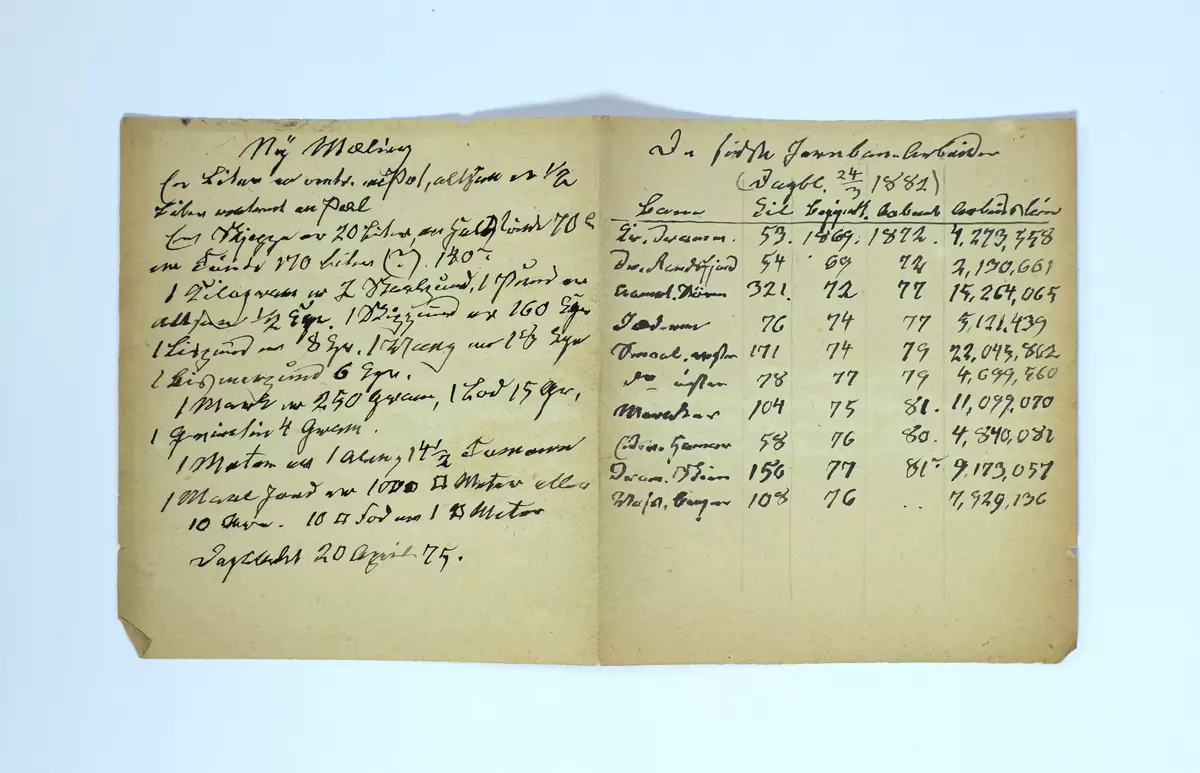 Ny Maling
En Liter er omtr. en Pot, altsaa er 1/2
Liter omtrent en Pæl
En Skjeppe er 20 Liter, en halv Tønde 70 L
en Tønde 140 Liter (?). 140
1 Kilogram er 2 Skaalpund, 1 Pund er
altsaa 1/2 Kgr. 1 Skippund er 160 Kgr
1 Lispund er 8 Kgr. 1 Vaag er 18 Kgr
1 Bismerpund 6 Kgr.
1 Mark er 250 Gram, 1 Lod 15 Gr,
1 Qvintin 4 Gram.
1 Meter er 1 Alen, 14 1/2 Tomme
1 Maal Jord er 1000 □ Meter eller
10 Are. 10 □ Fod er 1 □ Meter
Dagbladet 20 April 75.
De sidste Jernbane Arbeider
(Dagbl. 24/3 1882)
Bane
53. 1869. 1872. 4,273,558
Dr. Randsfjord 54 69 72 2,130,661
321. 72 77 15,264,065
Jæderen 76 74 77 5,121,439
Smaal. vestre 171 74 79 22,045,862
do østre 78 77 79 4,699,560
Meraker 104 75 81. 11,099,070
Hamar 58 76 80. 4,840,082
Dram. Skien 156 77 81 9,173,057
108 76 .. 7,929,136